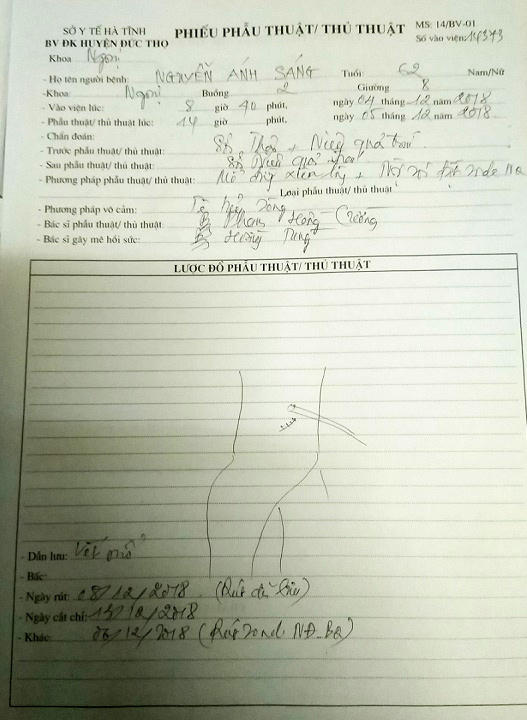 SỞ Y TẾ HÀ TĨNH
BV ĐK HUYỆN ĐỨC THỌ
PHIẾU PHẪU THUẬT/ THỦ THUẬT
MS: 14/BV-01
Số vào viện: 14373
Khoa Ngoại
- Họ tên người bệnh: NGUYỄN ÁNH SÁNG Tuổi: 62 Nam/Nữ
-Khoa: Ngoại Buồng 2 Giường 8
- Vào viện lúc: 8 giờ 40 phút, ngày 04 tháng 12 năm 2018
- Phẫu thuật/ thủ thuật lúc: 14 giờ phút, ngày 05 tháng 12 năm 2018
- Chẩn đoán:
- Trước phẫu thuật/ thủ thuật: Sỏi Thận + Niệu quản
- Sau phẫu thuật/ thủ thuật: Sỏi Niệu quản
- Phương pháp phẫu thuật/ thủ thuật: Mổ + đặt sonde
Loại phẫu thuật/ thủ thuật
- Phương pháp vô cảm: Tê tủy sống
- Bác sĩ phẫu thuật/ thủ thuật: Bs Phan Hồng Cường
- Bác sĩ gây mê hồi sức: Bs Hoàng Tùng
LƯỢC ĐỒ PHẪU THUẬT/ THỦ THUẬT
- Dẫn lưu: Vết mổ
- Bấc:
- Ngày rút: 08/12/2018 (Rút dẫn lưu)
- Ngày cắt chỉ: /12/2018
- Khác: 06/12/2018 (Rút sonde NĐ-BQ)